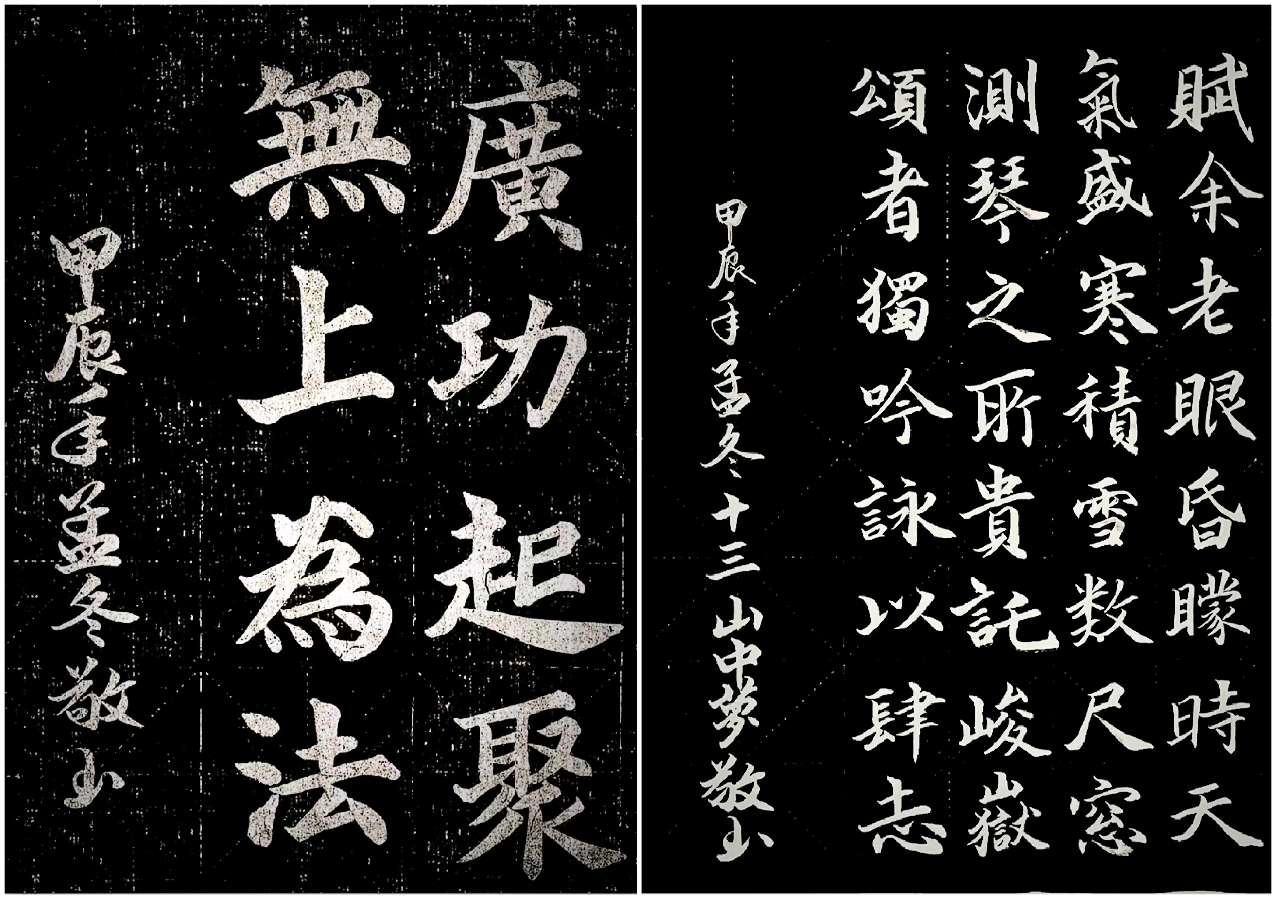 賦余老眼昏矇時天
氣盛寒積雪数尺窓
測琴之所貴託峻嶽
頌者獨吟詠以肆志
甲辰年孟冬十三山中夢敬山
廣功起聚
無上為法
甲辰年孟冬敬山